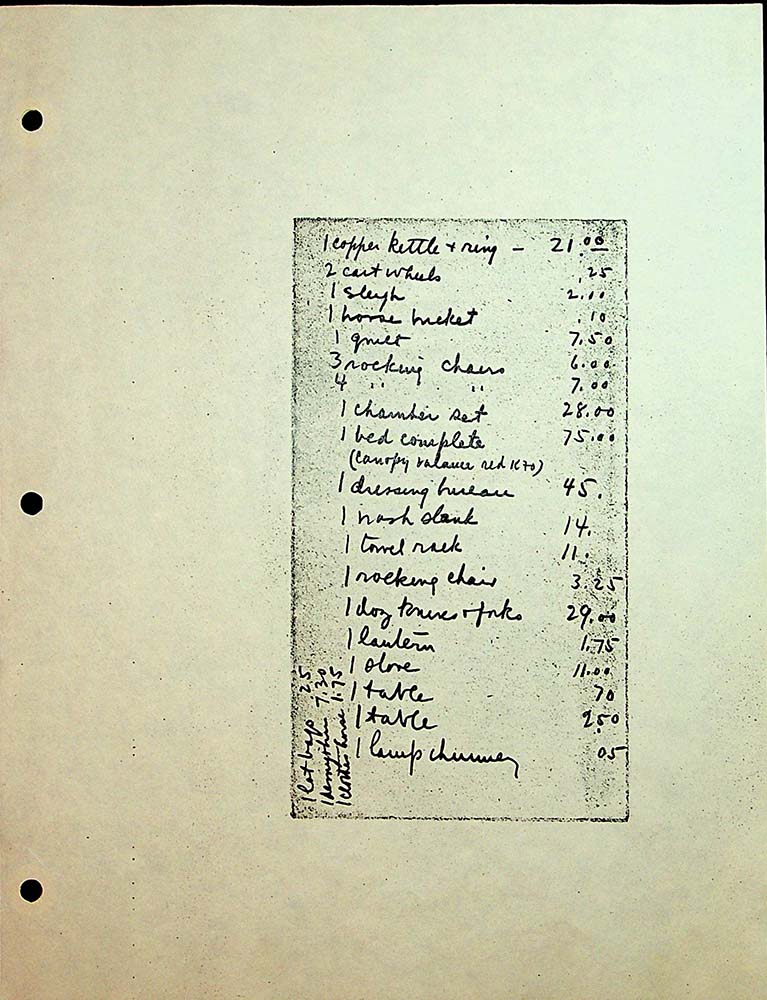 1 copper kettle + ring – 21.00
2 cart wheels .25
1 sleigh 2.00
1 horse bucket .10
1 quilt 7.50
3 rocking chairs 6.00
4 " " 7.00
1 chamber set 28.00
1 bed complete 75.00
(canopy valance red 1870)
1 dressing bureau 45.
1 wash stand 14.
1 towel rack 11.
1 rocking chair 3.25
1 doz knives + forks 29.00
1 lantern 1.75
1 stove 11.00
1 table 70
1 table 2.50
1 lamp chimney 05
1 lot bags 25
1 demijohn 7.30
1 clothes horse 1.75